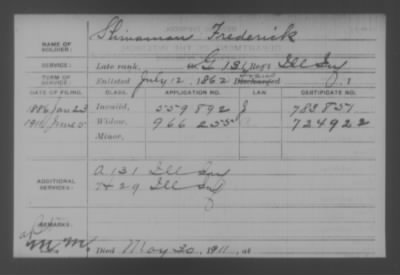 Shinaman Frederick
NAME OF SOLDIER:
SERVICE: Late rank, G 131 Reg't Ill Inf
TERM OF SERVICE: Enlisted July 12, 1862 Discharged , 1
DATE OF FILING. CLASS. APPLICATION NO. LAW CERTIFICATE NO.
1886 Jan 23 Invalid, 559 892 J 783 857
June 5 Widow, 966 255 724922
Minor,
ADDITIONAL SERVICES: A 131 Ill Inf
H 29 Ill Inf
REMARKS:
Died May 30, 1911, at